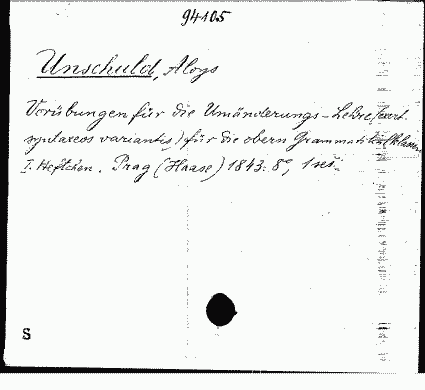 94105
Unschuld, Aloys
Vorübungen für die Umänderungs-Lehre (exot.
syntaxeos variantis) für die obern Grammatikalklassen
I. Heftchen. Prag (Haase) 1843. 8°, 1 seš.
S